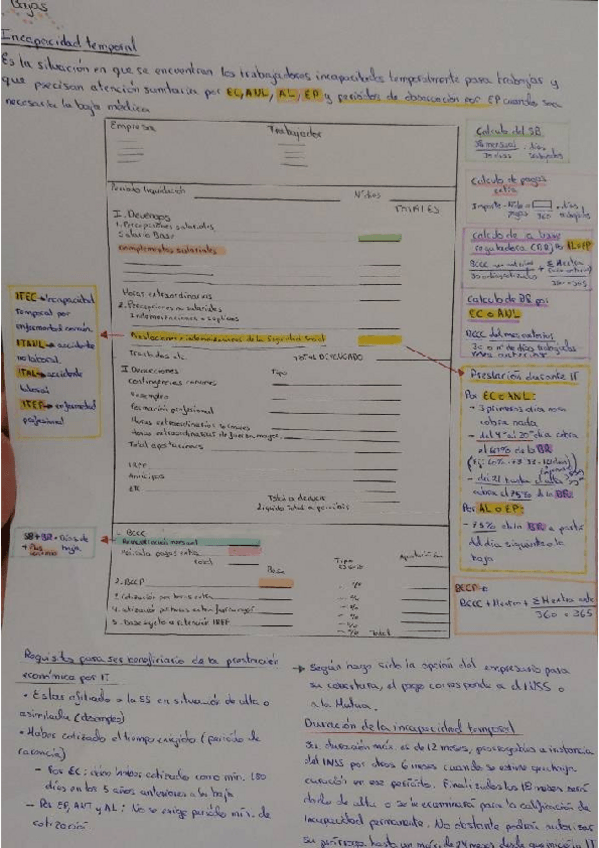 Bajas
Incapacidad temporal
Es la situación en que se encuentran los trabajadores incapacitados temporalmente para trabajar y
que precisan atención sanitaria por EC, ANL, AL, EP y periodos de observación por EP cuando sea
necesaria la baja médica
Empresa
Trabajador
Periodo liquidación
Nº días
TOTALES
I. Devengos
1. Percepciones salariales
Salario Base
Complementos salariales
Horas extraordinarias
2. Percepciones no salariales
Indemnizaciones o suplidos
Prestaciones e indemnizaciones de la Seguridad Social
Traslados etc.
TOTAL DEVENGADO
II Deducciones
Tipo
Contingencias comunes
Desempleo
Formación profesional
Horas extraordinarias
Horas extraordinarias de fuerza mayor
Total aportaciones
IRPF
Anticipos
Total a deducir
Líquido total a percibir
BCCC
Remuneración mensual
Prorrata pagas extra
total
Base
Tipo
Aportación
2. BCCP
3. Cotización por horas extra
4. Cotización por horas extra fuerza mayor
5. Base sujeta a retención IRPF
Total
ITEC → Incapacidad
temporal por
enfermedad común.
ITANL → accidente
no laboral.
ITAL → accidente
laboral
ITEP → enfermedad
profesional
SB + BR × días de
baja
Calculo del SB
Calculo de pagas
extra
Calculo de la base
reguladora (BR) por AL o EP
Calculo de BR por
EC o ANL
BCCC del mes anterior
Prestación durante IT
Por EC o ANL:
- 3 primeros días no se
cobra nada
- del 4º al 20º día cobra
el 60% de la BR
- del 21 hasta el alta
cobra el 75% de la BR
Por AL o EP:
- 75% de la BR a partir
del día siguiente a la
baja
BCCP =
360 o 365
Requisitos para ser beneficiario de la prestación
económica por IT
• Estar afiliado a la SS en situación de alta o
asimilada (desempleo)
• Haber cotizado el tiempo exigido (período de
carencia)
- Por EC: debe haber cotizado como mín. 180
días en los 5 años anteriores a la baja
- Por EP, ANT y AL: No se exige período mín. de
cotización
→ Según haya sido la opción del empresario para
su cobertura, el pago corresponde a el INSS o
a la Mutua.
Duración de la incapacidad temporal
Su duración máx. es de 12 meses, prorrogables a instancia
del INSS por otros 6 meses cuando se estime que haya
curación en ese período. Finalizados los 18 meses será
dado de alta o se le examinará para la calificación de
incapacidad permanente. No obstante podrá autorizar
su prórroga hasta un máx. de 24 meses desde que inició la IT